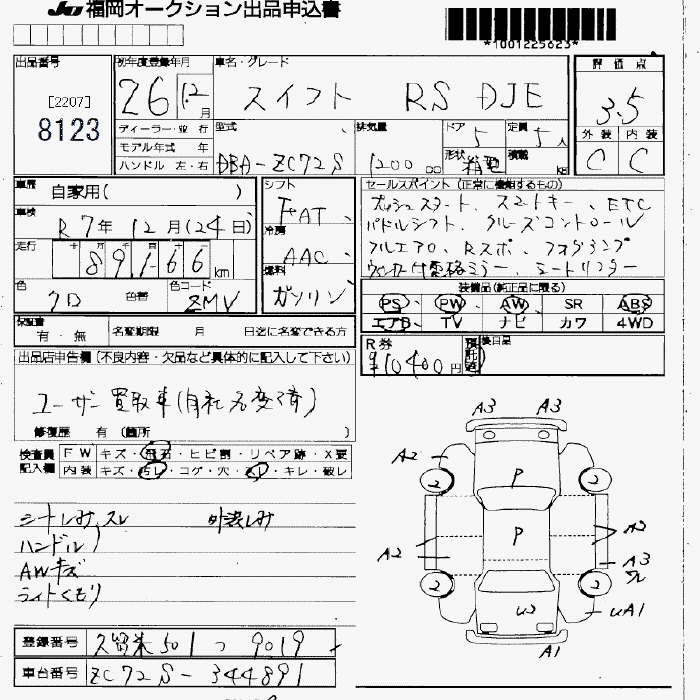 JU 福岡オークション出品申込書
*1001225623*
出品番号
[2207]
8123
初年度登録年月
26年 12月
車名・グレード
スイフト RS DJE
評価点
3.5
外装 内装
C C
ディーラー・並行
モデル年式 年
ハンドル 左・右
型式
DBA-ZC72S
排気量
1200 cc
ドア
5
形状
箱型
定員
5人
積載
kg
車歴
自家用( )
車検
R7年12月(24日)
走行
十 万 千 百
89,166 km
色
色替
色コード
ZMV
シフト
FAT
冷房
AAC
燃料
ガソリン
セールスポイント(正常に機能するもの)
プッシュスタート、スマートキー、ETC
パドルシフト、クルーズコントロール
フルエアロ、Rスポ、フォグランプ
ウィンカー付電格ミラー、シートリフター
装備品(純正品に限る)
PS PW AW SR ABS
エアB TV ナビ カワ 4WD
保証書
有・無
名変期限 月 日迄に名変できる方
R券
¥10400円
預託済
後日品
出品店申告欄(不良内容・欠品など具体的に記入して下さい)
ユーザー買取車(自社名変済)
修復歴 有(箇所 )
検査員記入欄
FW キズ・飛石・ヒビ割・リペア跡・X要
内装 キズ・汚レ・コゲ・穴・スレ・キレ・破レ
シートしみ、スレ 外装しみ
ハンドル
AWキズ
ライトくもり
A3 A3
A2
2 2
P
P
A2
A2
A3
2 2
U2
UA1
A1
登録番号 久留米501 つ 9019
車台番号 ZC72S-344891